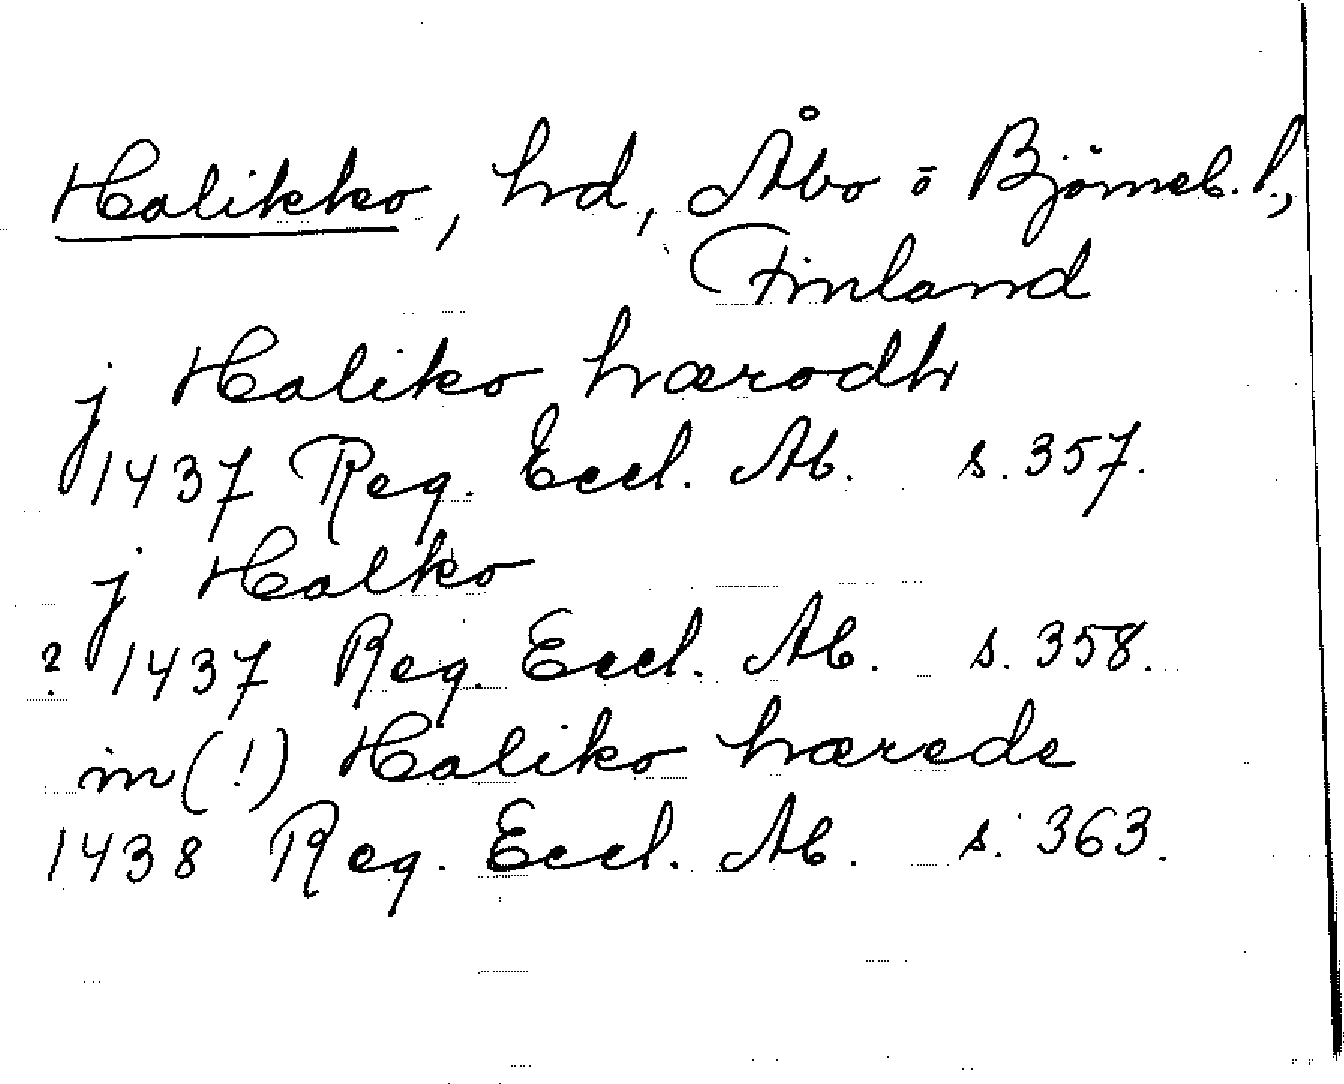 Halikko, hd, Åbo o Björneb. l.,
Finland
j Haliko hærodh
1437 Reg. Eccl. Ab. s. 357.
j Halko
? 1437 Reg. Eccl. Ab. s. 358.
in (!) Haliko hærede
1438 Reg. Eccl. Ab. s. 363.